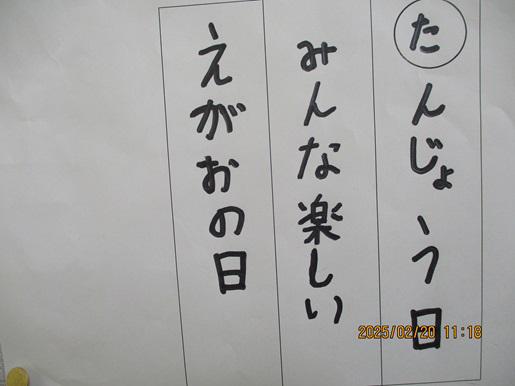 たんじょう日
みんな楽しい
えがおの日
2025/02/20 11:18